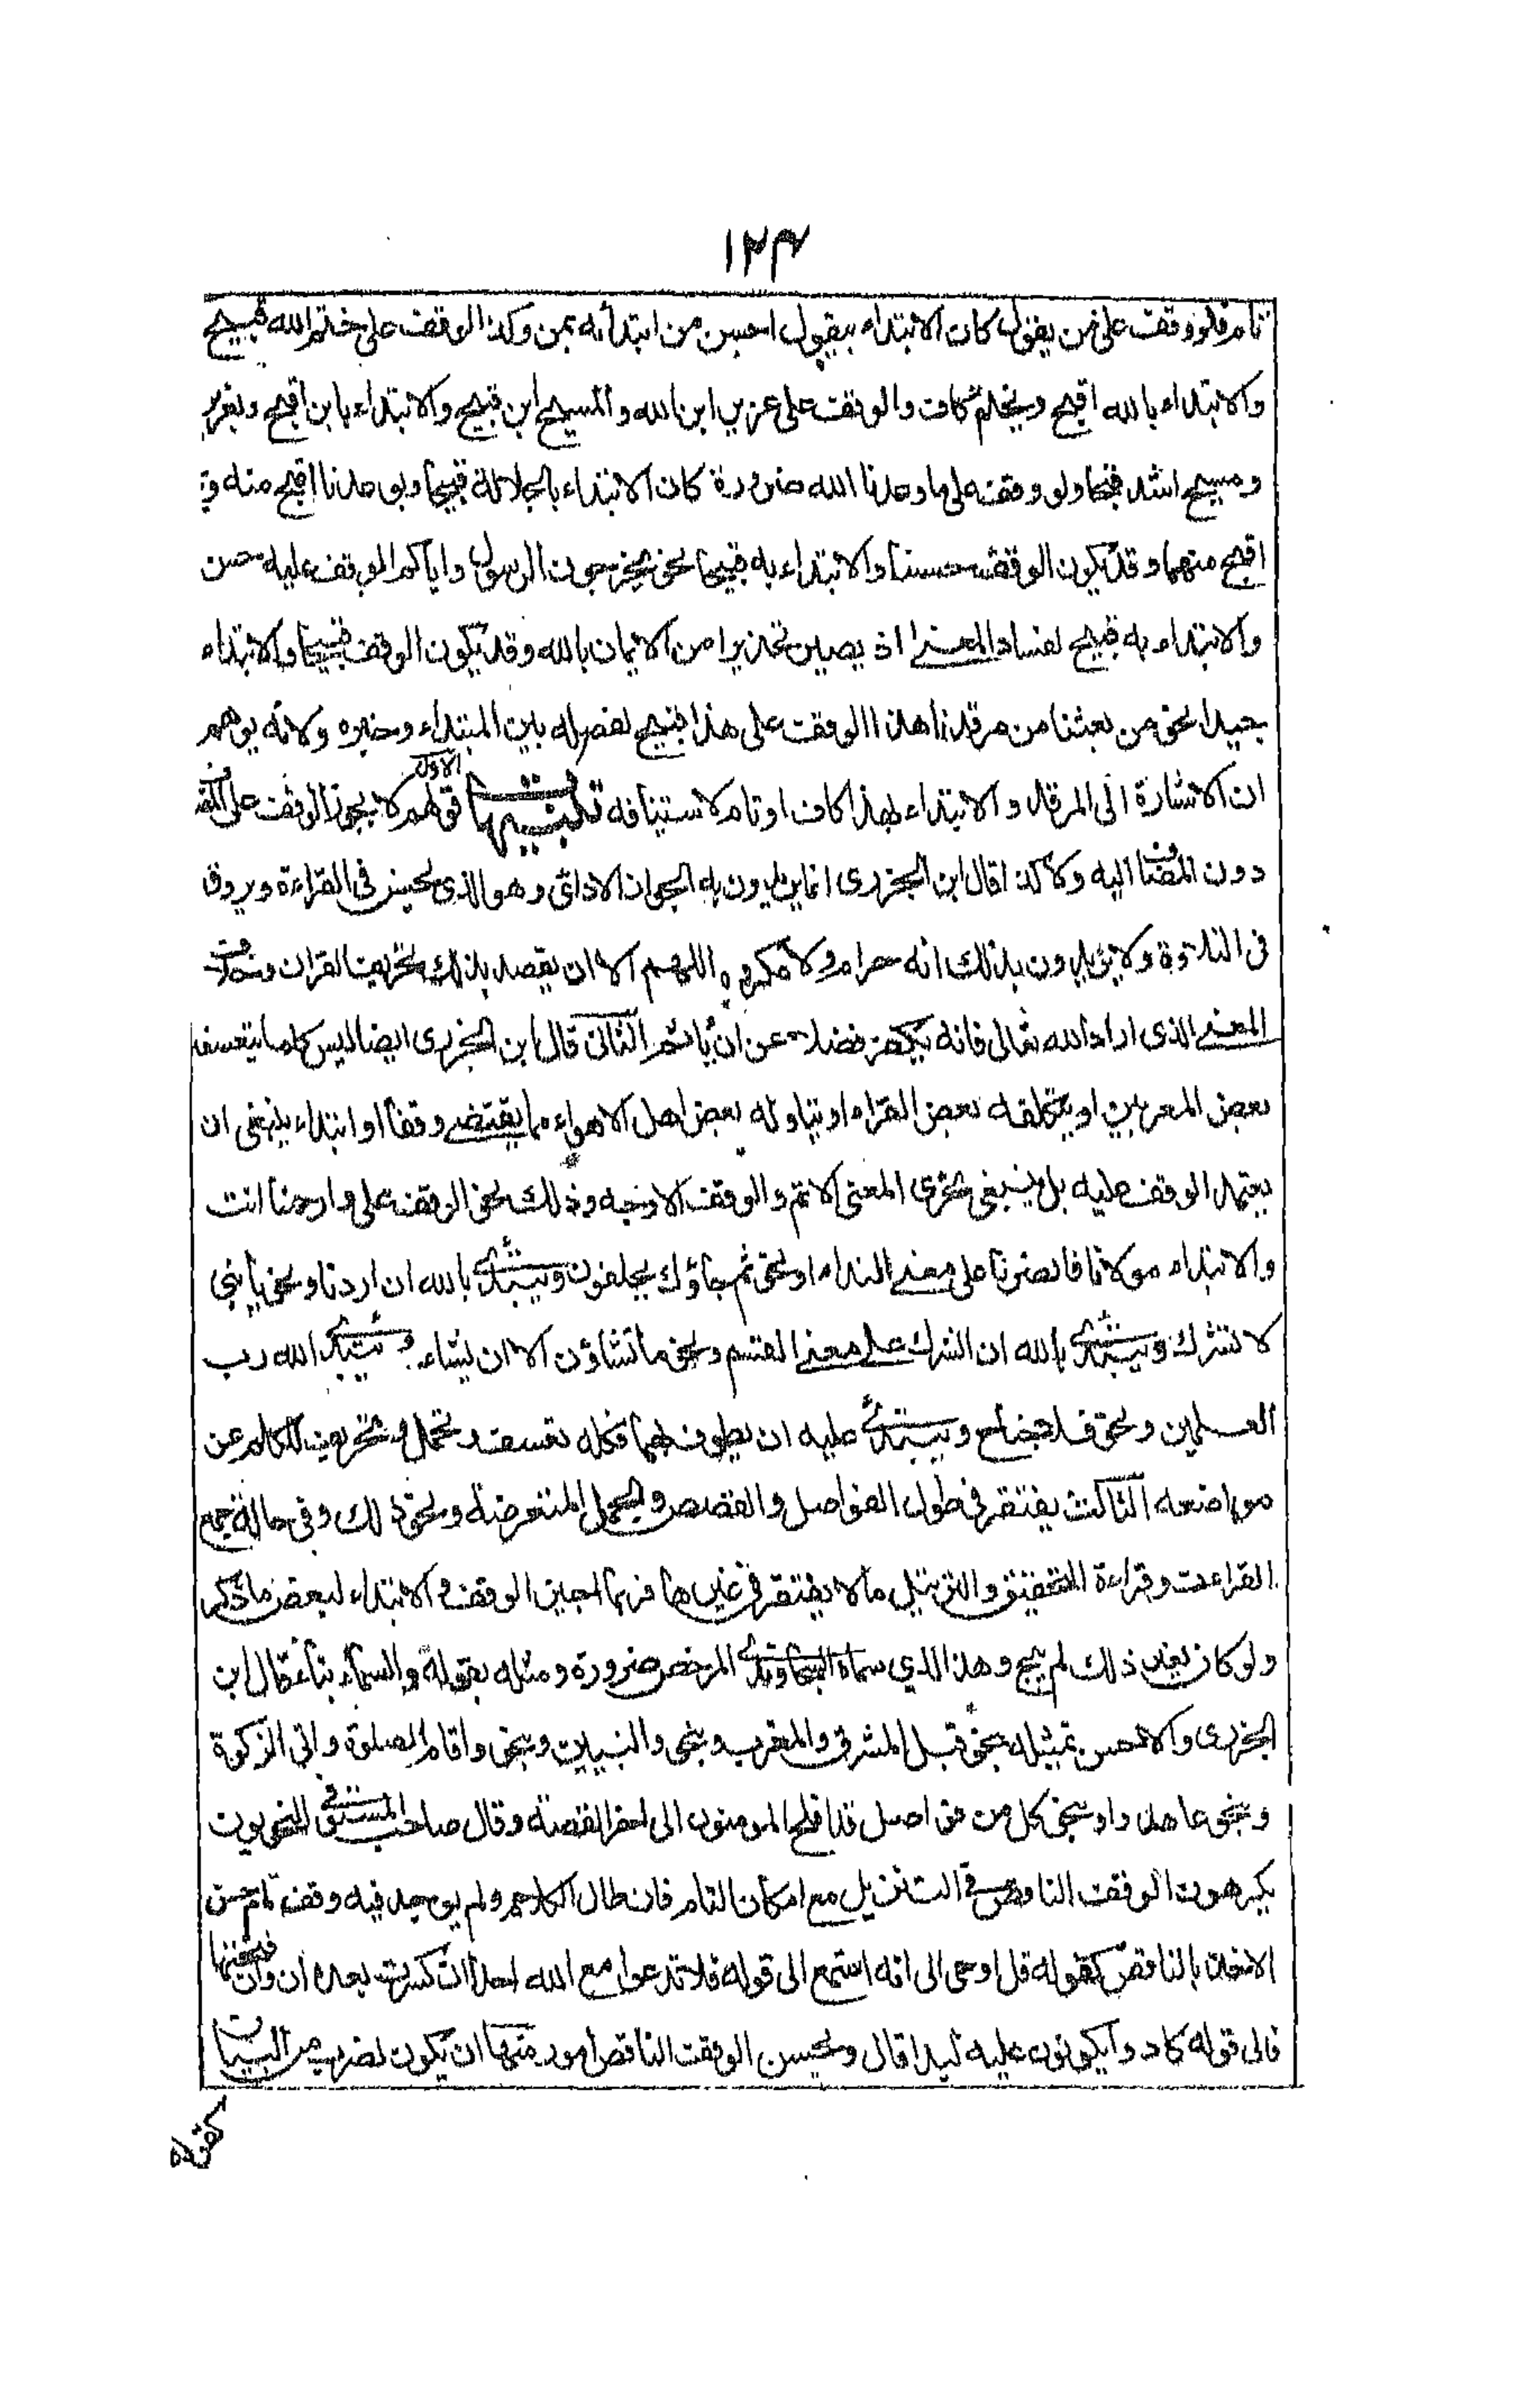 ١٢٣
تام فلو وقف على من يقول كان الابتداء بيقول احسن من ابتدائه بمن وكذا الوقف على ختم الله قبيح
والابتداء بالله اقبح وبختم كاف والوقف على عزير ابن الله والمسيح ابن قبيح والابتداء بابن اقبح وبعزير
ومسيح اشد قبحا ولو وقف على ما وعدنا الله ضرورة كان الابتداء بالجلالة قبيحا وبوعدنا اقبح منه و
اقبح منهما وقد يكون الوقف حسنا والابتداء به قبيحا نحو يخرجون الرسول واياكم الوقف عليه حسن
والابتداء به قبيح لفساد المعنى اذ يصير تحذيرا من الايمان بالله وقد يكون الوقف قبيحا والابتداء
جيدا نحو من بعثنا من مرقدنا هذا الوقف على هذا قبيح لفصله بين المبتداء وخبره ولانه يوهم
ان الاشارة الى المرقد والابتداء لهذا كاف او تام لاستينافه تنبيهات الاول قولهم لا يجوز الوقف على المضاف
دون المضاف اليه وكا كذا قال ابن الجزرى انما يريدون به الجواز الادائى وهو الذى يحسن فى القراءة ويروق
فى التلاوة ولا يريدون بذلك انه حرام ولا مكروه اللهم الا ان يقصد بذلك تحريف القران وخلاف
المعنى الذى اراد الله تعالى فانه يكفر فضلا عن ان ياثم الثانى قال ابن الجزرى ايضا ليس كل ما يتعسفه
بعض المعربين او يتكلفه بعض القراء او يتاوله بعض اهل الاهواء مما يقتضى وقفا او ابتداء ينبغى ان
يعتمد الوقف عليه بل ينبغى تحرى المعنى الاتم والوقف الاوجه وذلك نحو الوقف على وارحمنا انت
والابتداء مولانا فانصرنا على معنى النداء ونحو ثم جاؤك يحلفون ويبتدئ بالله ان اردنا ونحو يا بنى
لا تشرك ويبتدئ بالله ان الشرك على معنى القسم ونحو ما تشاؤن الا ان يشاء ويبتدئ الله رب
العلمين ونحو فلا جناح ويبتدئ عليه ان يطوف بهما فكله تعسف وتمحل وتحريف للكلم عن
مواضعه الثالث يغتفر فى طول الفواصل والقصص والجمل المعترضة ونحو ذلك وفى حالة جمع
القراءت وقراءة التحقيق والترتيل ما لا يغتفر فى غيرها فربما اجيز الوقف والابتداء لبعض ما ذكر
ولو كان لغير ذلك لم يبح وهذا الذي سماه السجاوندى المرخص ضرورة ومثله بقوله والسماء بناء قال ابن
الجزرى والاحسن تمثيله بنحو قبل المشرق والمغرب وبنحو والنبيين وبنحو واقام الصلوة واتى الزكوة
وبنحو عاهدوا وبنحو كل من فواصل قد افلح المومنون الى اخر القصة وقال صاحب المستوفى النحويون
يكرهون الوقف الناقص فى التنزيل مع امكان التام فان طال الكلام ولم يوجد فيه وقف تام حسن
الاخذ بالناقص كقوله قل اوحى الى انه استمع الى قوله فلا تدعوا مع الله احدا ان كسرت بعده ان وان فتحتها
فالى قوله كادوا يكونون عليه لبدا قال ويحسن الوقف الناقص امور منها ان يكون لضرب من البيان
كقوله